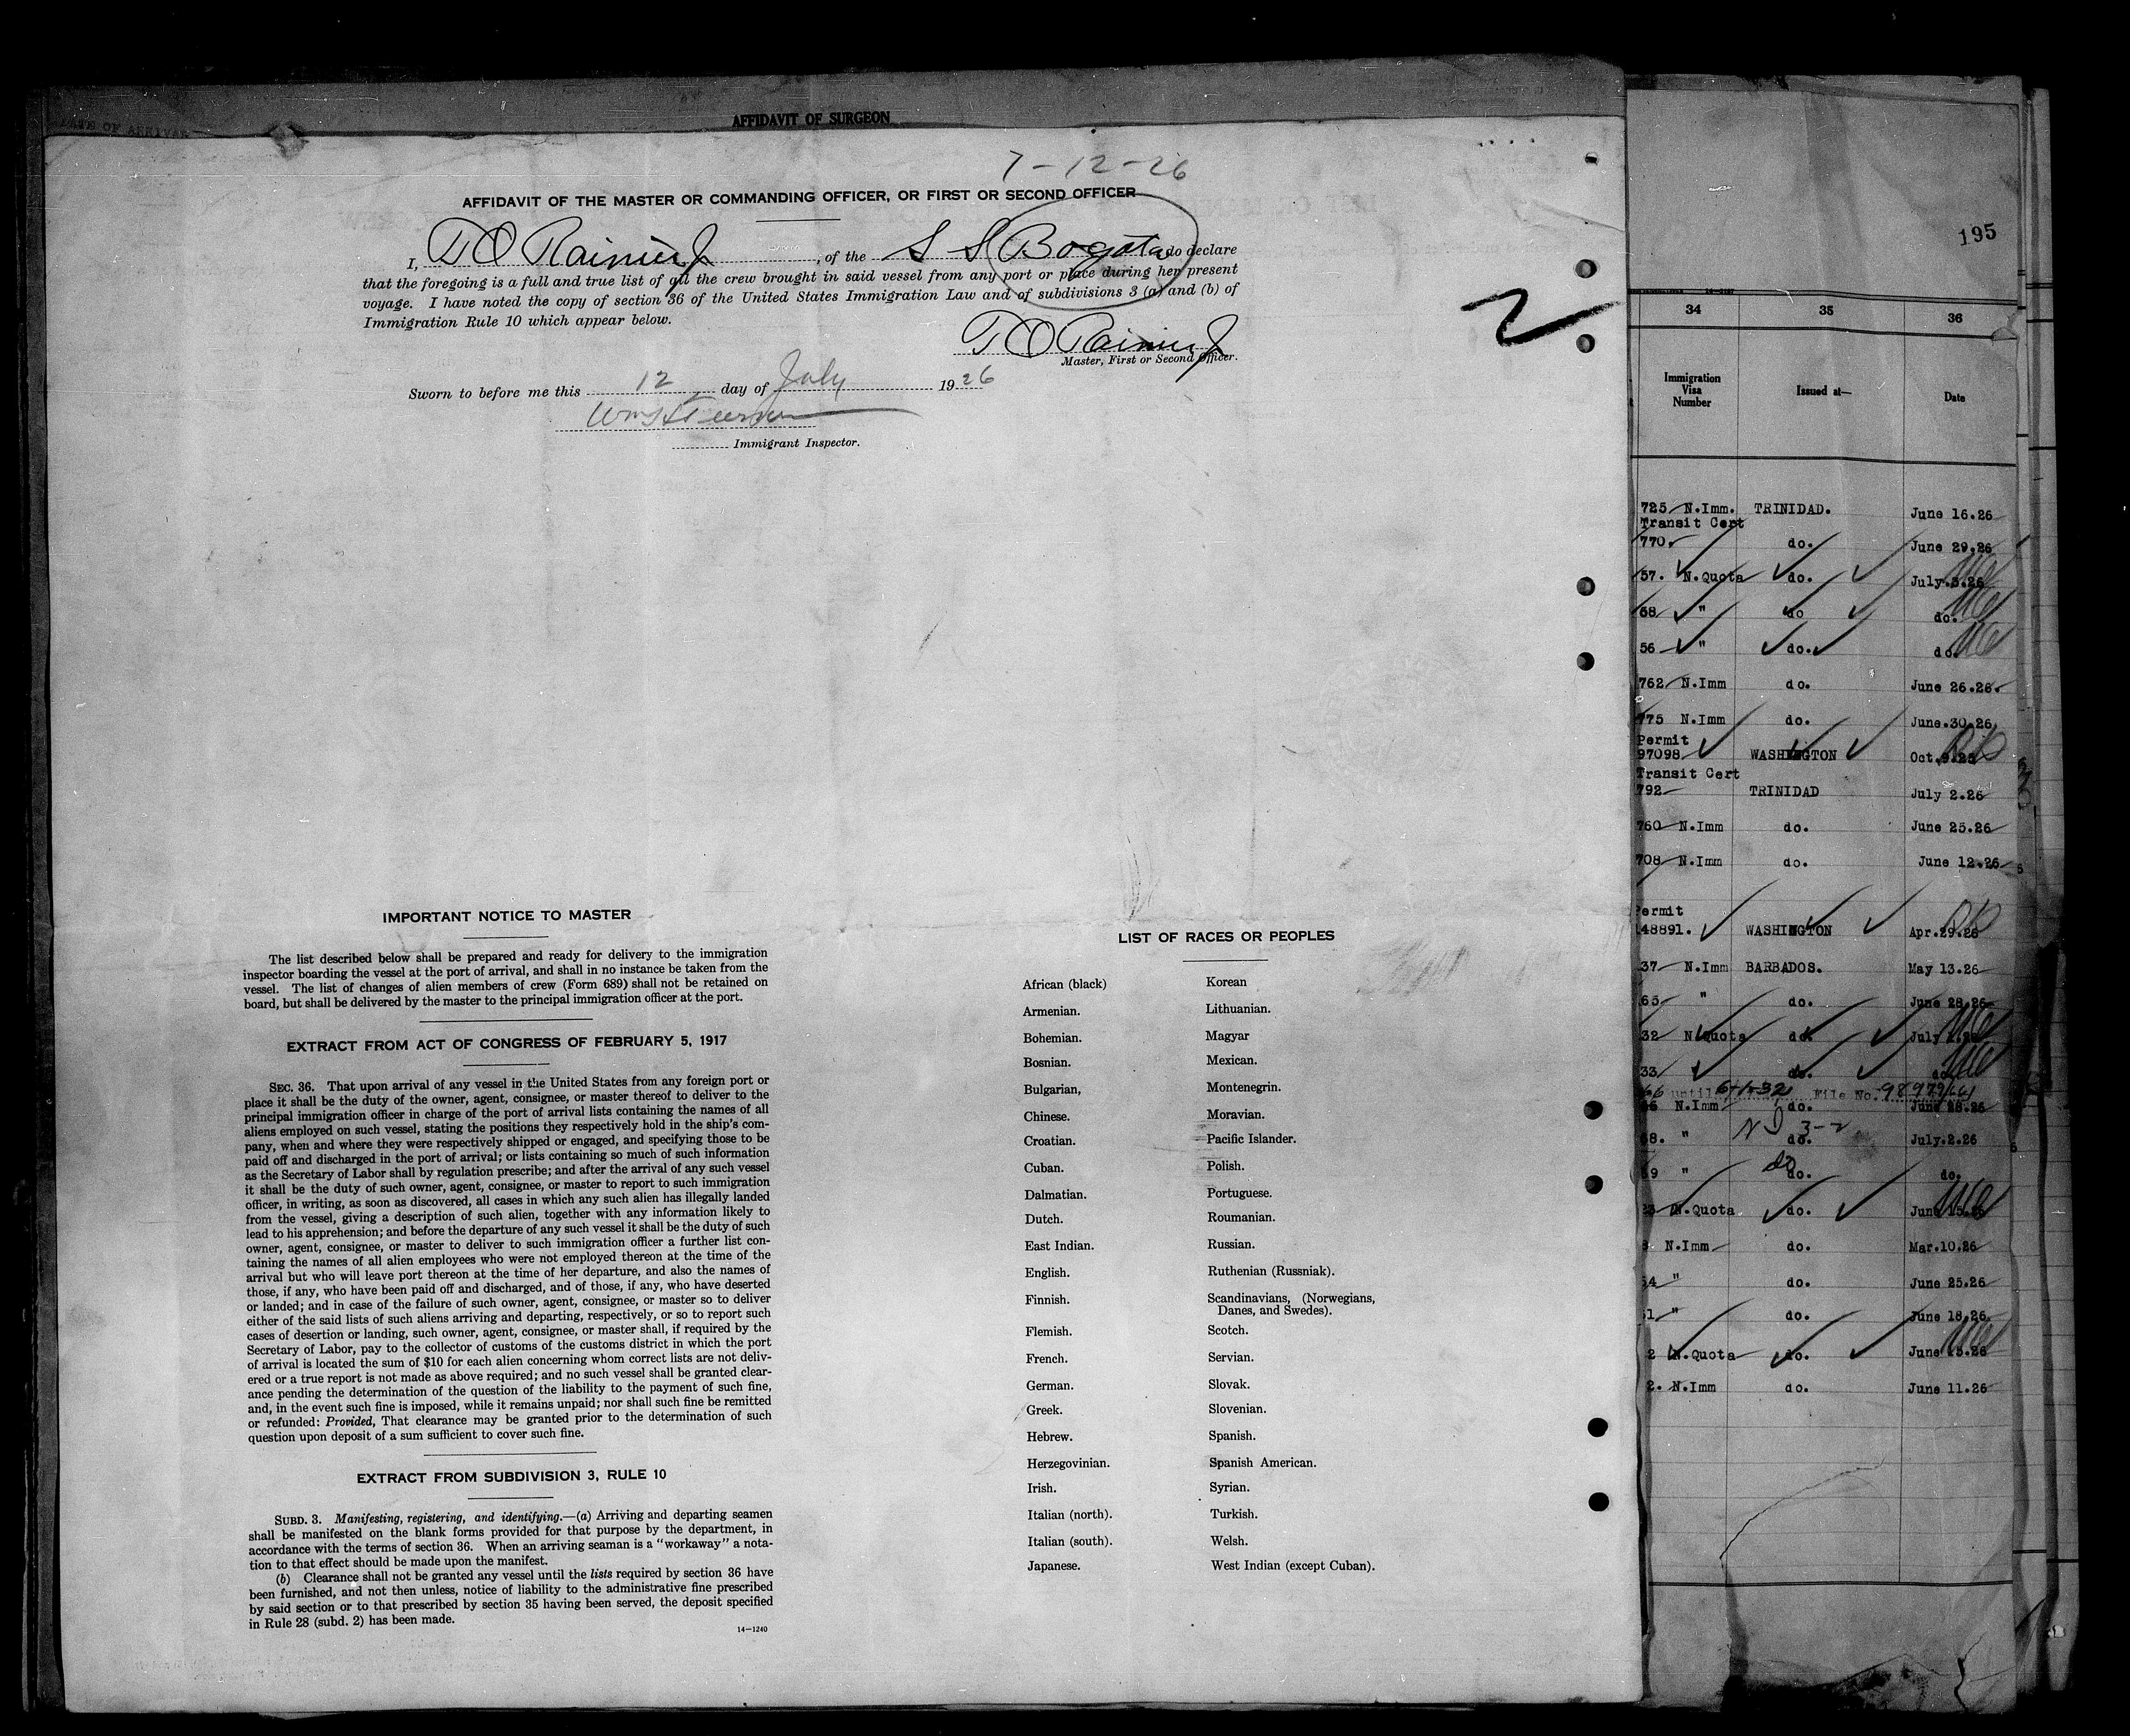 DATE OF ARRIVAL
AFFIDAVIT OF SURGEON
7-12-26
AFFIDAVIT OF THE MASTER OR COMMANDING OFFICER, OR FIRST OR SECOND OFFICER
I, T O Rainier Jr, of the S S Bogota do declare
that the foregoing is a full and true list of all the crew brought in said vessel from any port or place during her present
voyage. I have noted the copy of section 36 of the United States Immigration Law and of subdivisions 3 (a) and (b) of
Immigration Rule 10 which appear below.
T O Rainier Jr
Master, First or Second Officer.
2
Sworn to before me this 12 day of July 1926
Immigrant Inspector.
IMPORTANT NOTICE TO MASTER
The list described below shall be prepared and ready for delivery to the immigration
inspector boarding the vessel at the port of arrival, and shall in no instance be taken from the
vessel. The list of changes of alien members of crew (Form 689) shall not be retained on
board, but shall be delivered by the master to the principal immigration officer at the port.
EXTRACT FROM ACT OF CONGRESS OF FEBRUARY 5, 1917
SEC. 36. That upon arrival of any vessel in the United States from any foreign port or
place it shall be the duty of the owner, agent, consignee, or master thereof to deliver to the
principal immigration officer in charge of the port of arrival lists containing the names of all
aliens employed on such vessel, stating the positions they respectively hold in the ship's com-
pany, when and where they were respectively shipped or engaged, and specifying those to be
paid off and discharged in the port of arrival; or lists containing so much of such information
as the Secretary of Labor shall by regulation prescribe; and after the arrival of any such vessel
it shall be the duty of such owner, agent, consignee, or master to report to such immigration
officer, in writing, as soon as discovered, all cases in which any such alien has illegally landed
from the vessel, giving a description of such alien, together with any information likely to
lead to his apprehension; and before the departure of any such vessel it shall be the duty of such
owner, agent, consignee, or master to deliver to such immigration officer a further list con-
taining the names of all alien employees who were not employed thereon at the time of the
arrival but who will leave port thereon at the time of her departure, and also the names of
those, if any, who have been paid off and discharged, and of those, if any, who have deserted
or landed; and in case of the failure of such owner, agent, consignee, or master so to deliver
either of the said lists of such aliens arriving and departing, respectively, or so to report such
cases of desertion or landing, such owner, agent, consignee, or master shall, if required by the
Secretary of Labor, pay to the collector of customs of the customs district in which the port
of arrival is located the sum of $10 for each alien concerning whom correct lists are not deliv-
ered or a true report is not made as above required; and no such vessel shall be granted clear-
ance pending the determination of the question of the liability to the payment of such fine,
and, in the event such fine is imposed, while it remains unpaid; nor shall such fine be remitted
or refunded: Provided, That clearance may be granted prior to the determination of such
question upon deposit of a sum sufficient to cover such fine.
EXTRACT FROM SUBDIVISION 3, RULE 10
SUBD. 3. Manifesting, registering, and identifying.—(a) Arriving and departing seamen
shall be manifested on the blank forms provided for that purpose by the department, in
accordance with the terms of section 36. When an arriving seaman is a "workaway" a nota-
tion to that effect should be made upon the manifest.
(b) Clearance shall not be granted any vessel until the lists required by section 36 have
been furnished, and not then unless, notice of liability to the administrative fine prescribed
by said section or to that prescribed by section 35 having been served, the deposit specified
in Rule 28 (subd. 2) has been made.
14—1240
LIST OF RACES OR PEOPLES
African (black)
Armenian.
Bohemian.
Bosnian.
Bulgarian,
Chinese.
Croatian.
Cuban.
Dalmatian.
Dutch.
East Indian.
English.
Finnish.
Flemish.
French.
German.
Greek.
Hebrew.
Herzegovinian.
Irish.
Italian (north).
Italian (south).
Japanese.
Korean
Lithuanian.
Magyar
Mexican.
Montenegrin.
Moravian.
Pacific Islander.
Polish.
Portuguese.
Roumanian.
Russian.
Ruthenian (Russniak).
Scandinavians, (Norwegians,
Danes, and Swedes).
Scotch.
Servian.
Slovak.
Slovenian.
Spanish.
Spanish American.
Syrian.
Turkish.
Welsh.
West Indian (except Cuban).
195
34 35 36
Immigration
Visa
Number
Issued at—
Date
725 N.Imm. TRINIDAD. June 16.26
Transit Cert
770. do. June 29.26
57. N.Quota do. July.3.26
58 " do do.
56 " do. do.
762 N.Imm do. June 26.26.
775 N.Imm do. June.30.26
Permit
97098 WASHINGTON Oct.9.25
Transit Cert
792 TRINIDAD July 2.26
760 N.Imm do. June 25.26
708 N.Imm do. June 12.26
Permit
48891. WASHINGTON Apr.29.26
37 N.Imm BARBADOS. May 13.26
65 " do. June 28.26
32 N.Quota do. July
33 do. do.
66 until 6-1-32 File No. 98979/661
66 N.Imm do. June 28.26
68. " do. July.2.26
69 " do. do.
N.Quota do. June 15.26
N.Imm do. Mar.10.26
54 " do. June 25.26
" do. June 18.26
2 N.Quota do. June 15.26
2. N.Imm do. June 11.26